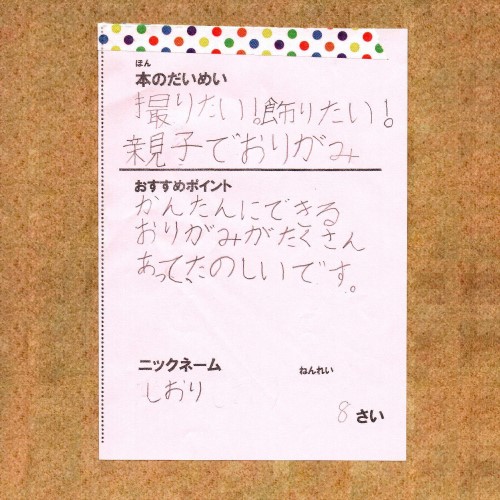 ほん
本のだいめい
撮りたい!飾りたい!
親子でおりがみ
おすすめポイント
かんたんにできる
おりがみがたくさん
あって、たのしいです。
ニックネーム
ねんれい
しおり
8 さい